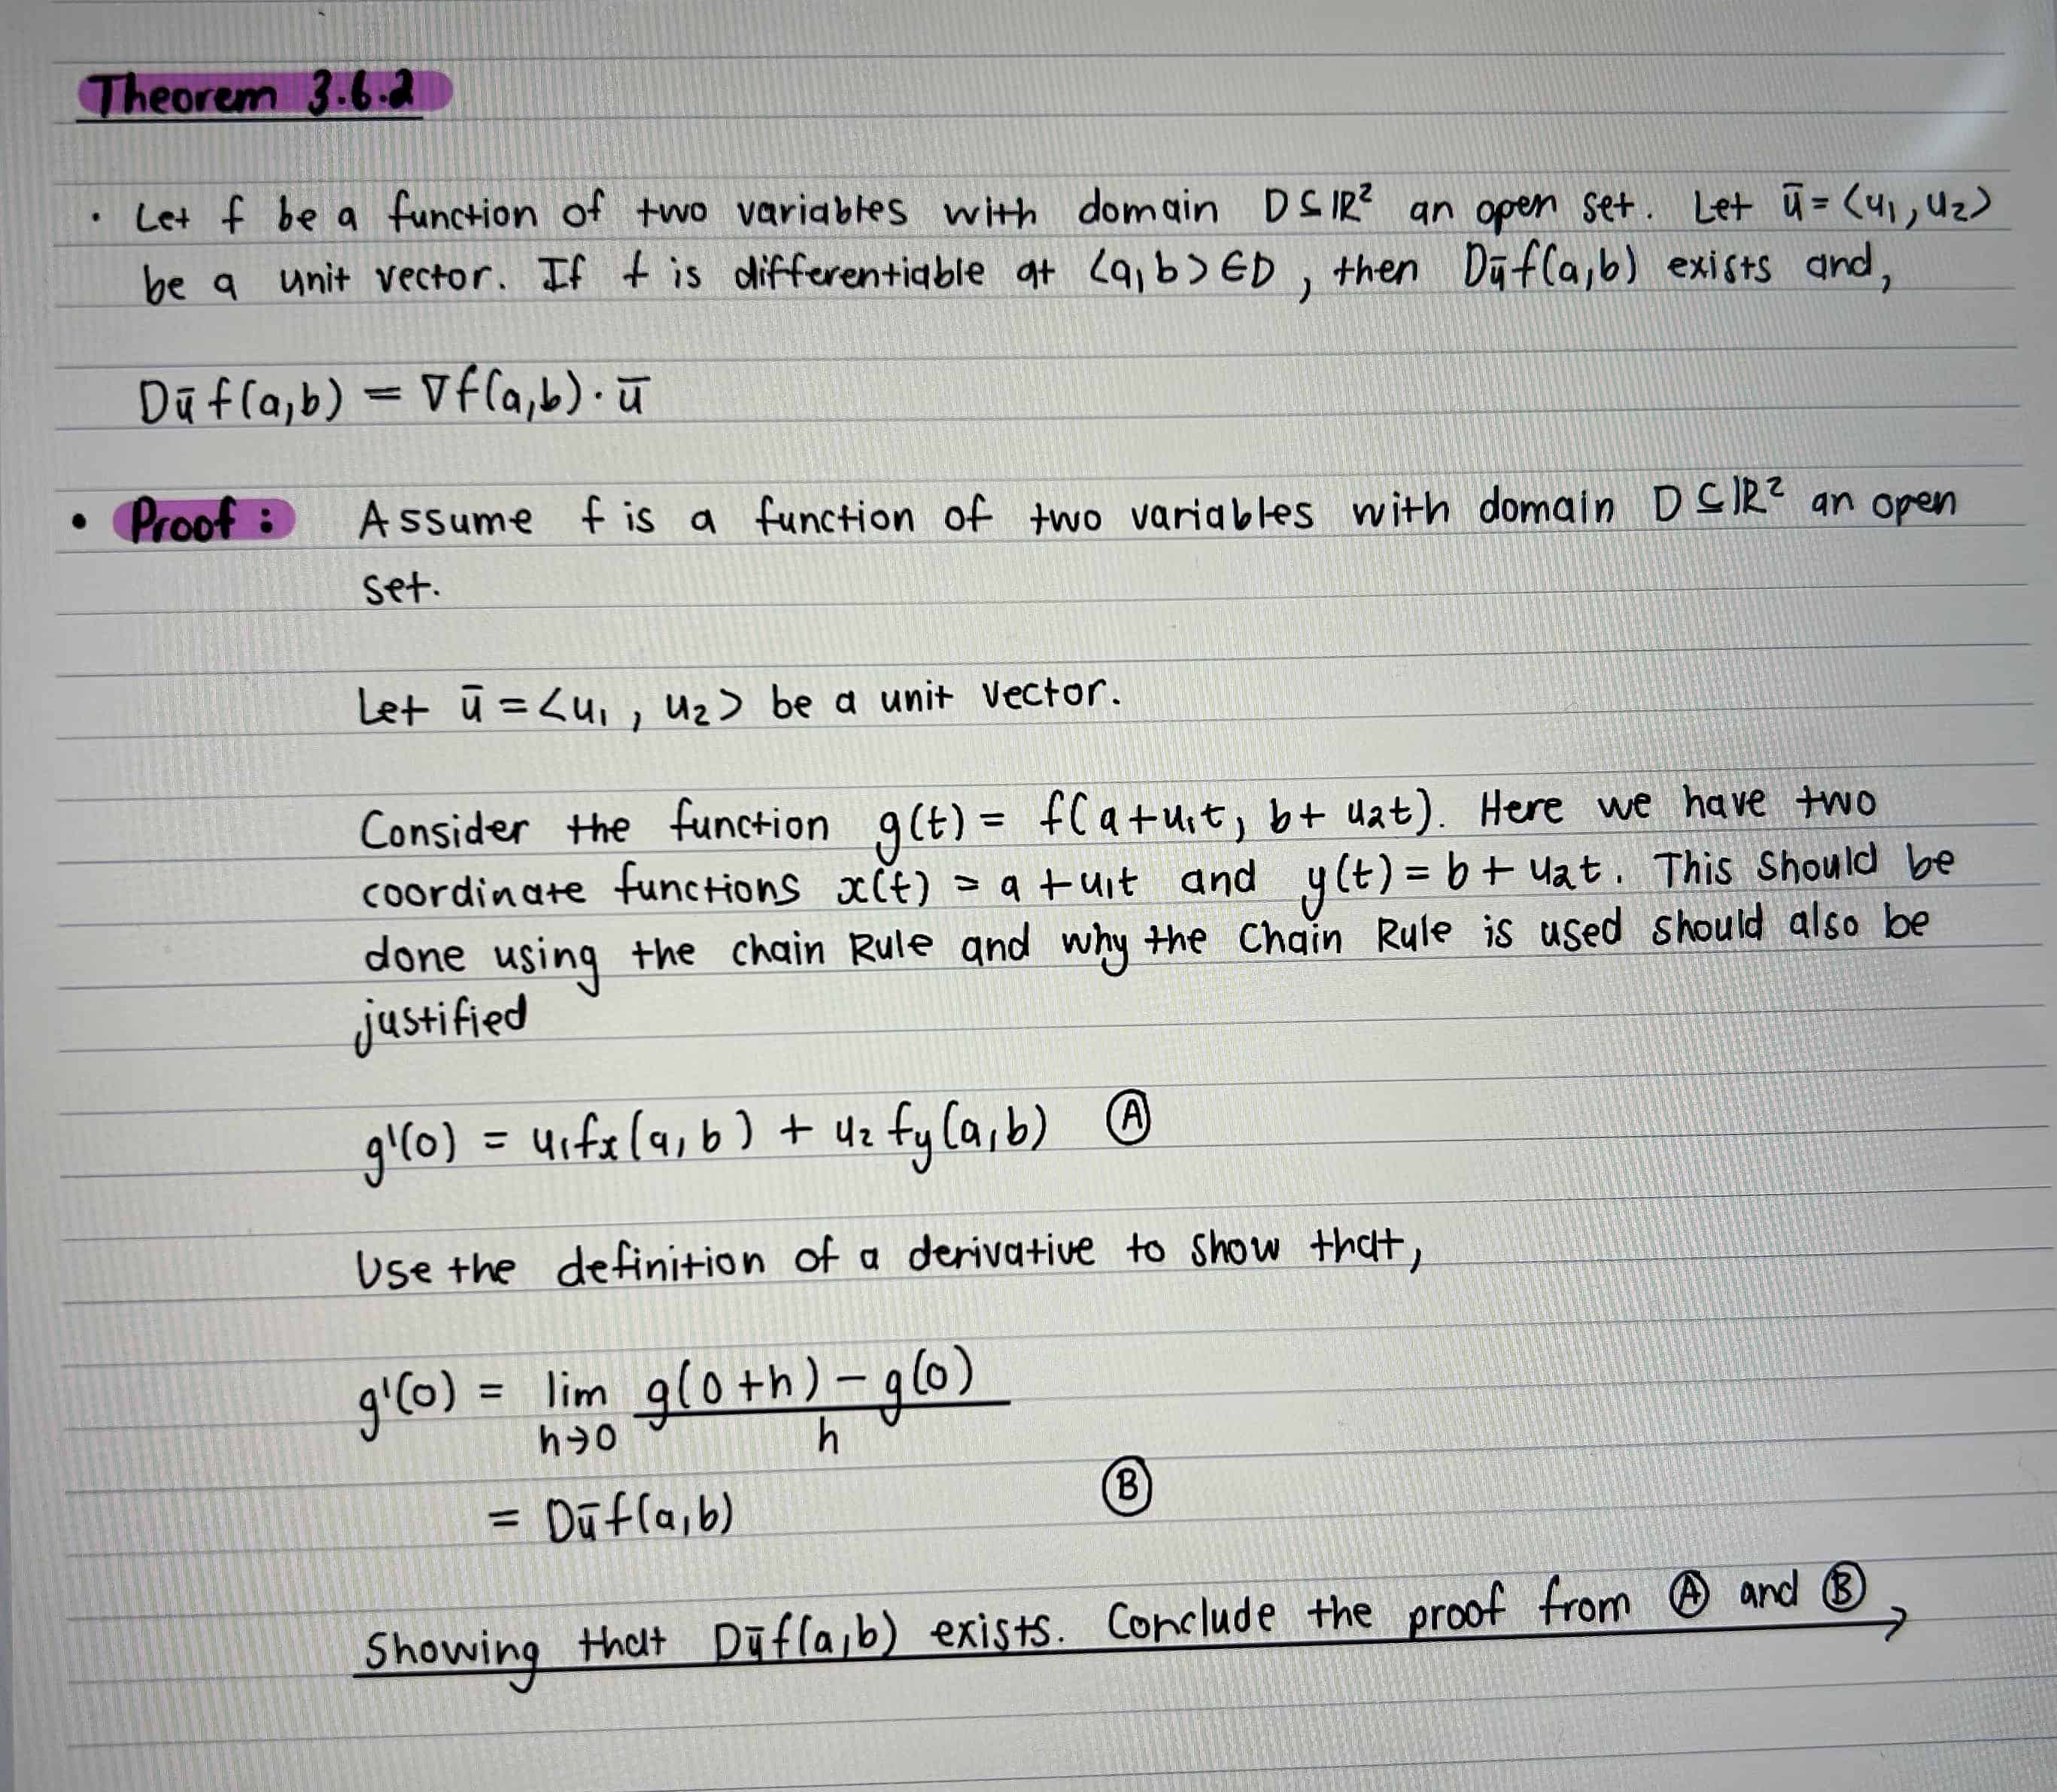 Theorem 3.6.2
• Let f be a function of two variables with domain D ⊆ ℝ² an open set. Let ū = <u₁, u₂>
be a unit vector. If f is differentiable at <a, b> ∈ D, then Dūf(a,b) exists and,
Dūf(a,b) = ∇f(a,b)·ū
• Proof: Assume f is a function of two variables with domain D ⊆ ℝ² an open
set.
Let ū = <u₁, u₂> be a unit vector.
Consider the function g(t) = f(a+u₁t, b+u₂t). Here we have two
coordinate functions x(t) = a + u₁t and y(t) = b + u₂t. This should be
done using the chain Rule and why the Chain Rule is used should also be
justified
g'(0) = u₁fx(a, b) + u₂ fy(a,b) Ⓐ
Use the definition of a derivative to show that,
g'(0) = lim g(0+h) − g(0)
h→0 h
= Dūf(a,b) Ⓑ
Showing that Dūf(a,b) exists. Conclude the proof from Ⓐ and Ⓑ →